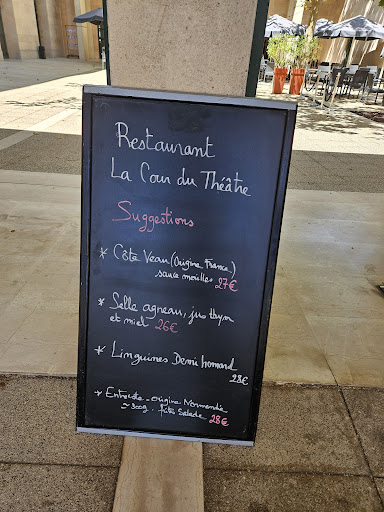 Restaurant
La Cour du Théâtre
Suggestions
* Côte Veau (Origine France)
sauce morilles 27€
* Selle agneau, jus thym
et miel 26€
* Linguines Demi homard
28€
* Entrecôte - origine Normandie
~ 300g . frites Salade 28€